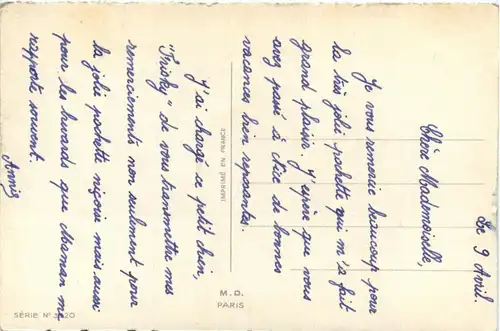 Le 9 Avril.
Chère Mademoiselle,
Je vous remercie beaucoup pour
la très jolie pochette qui m'a fait
grand plaisir. J'espère que vous
avez passé à de bonnes
vacances bien reposantes.
J'ai chargé ce petit chien,
"Frisky" de vous transmettre mes
remerciements non seulement pour
la jolie pochette niçoise mais aussi
pour les buvards que Maman me
rapporte souvent.
Annie
IMPRIMÉ EN FRANCE
M. D.
PARIS
SÉRIE N° 20